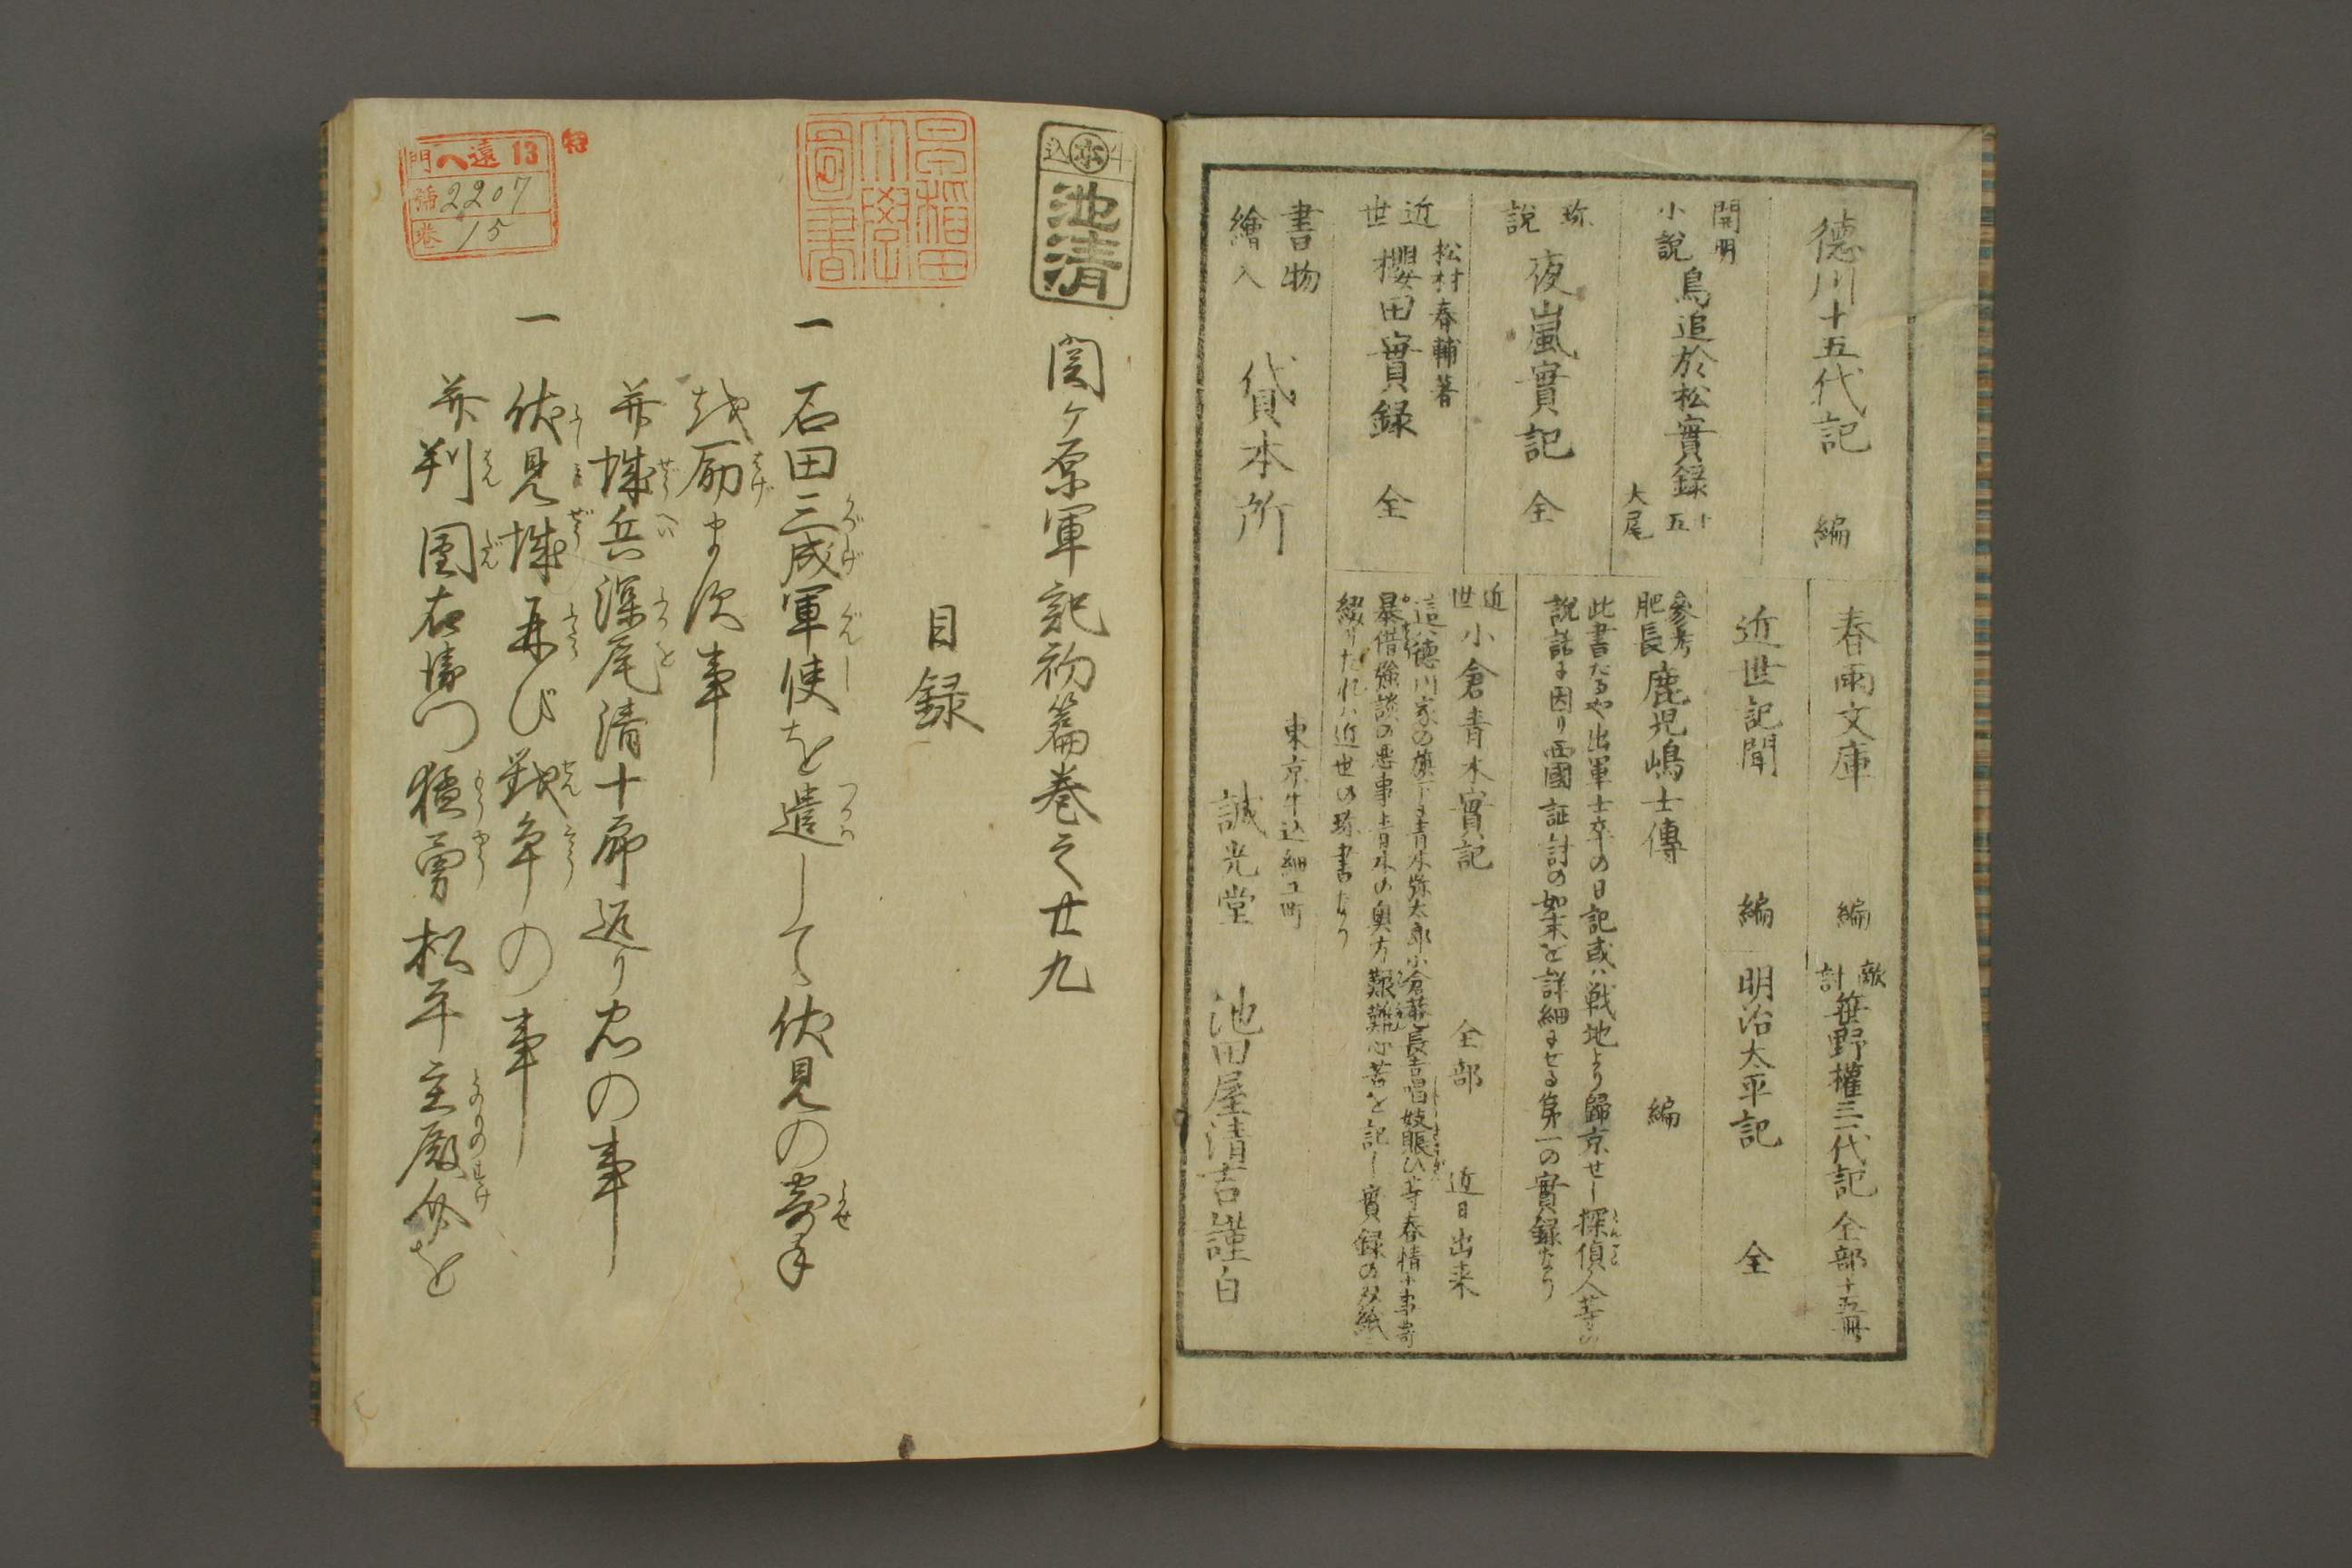 徳川十五代記　編
開明小説　鳥追於松實録　十五大尾
珎説　夜嵐實記　全
近世　松村春輔著　櫻田實録　全
春雨文庫　編
敵討　笹野權三代記　全部十五冊
近世記聞　編
明治太平記　全
參考肥長　鹿児嶋士傳　編
此書たるや出軍士卒の日記或ハ戦地より歸京せし探偵人等の
説話に因り西國証討の如末を詳細にせる第一の實録なり
近世　小倉青木實記　全部　近日出来
這ハ徳川家の旗下に青木弥太郎小倉菴長吉唱妓賑ひ等春情に事寄
暴借強談の悪事青木の奥方艱難心苦を記し實録の双紙
綴りたれハ近世の珎書なり
書物繪入　貸本所
東京牛込細工町
誠光堂　池田屋清吉謹白
牛込
池清
関ヶ原軍記初篇巻之廿九
目録
一　石田三成軍使を遣して伏見の寄手
を励ます事
并城兵深尾清十郎返り忠の事
一　伏見城再び戦争の事
并判團右衛門猛勇松平主殿助を
早稲田大學圖書
特
門　ヘ遠13
號　2207
巻　15